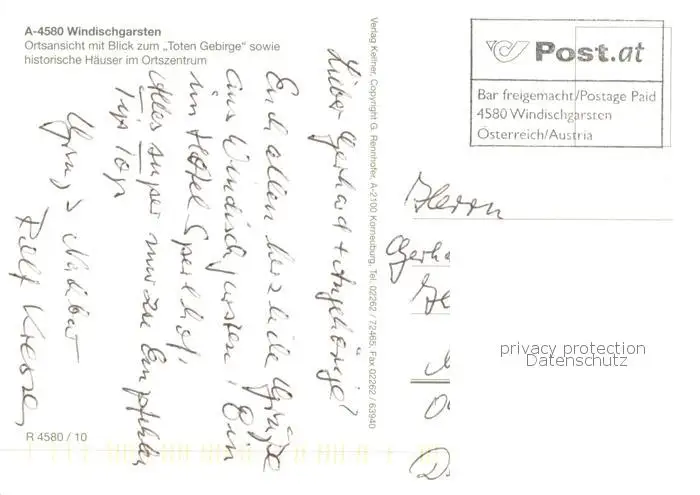 A-4580 Windischgarsten
Ortsansicht mit Blick zum „Toten Gebirge“ sowie
historische Häuser im Ortszentrum
Lieber Gerhard + Angehörige!
Euch allen herzliche Grüße
aus Windischgarsten! Bin
im Hotel Sperlhof,
Alles super nur zu Empfehlen
Tip Top
Nachbar
Rolf
R 4580 / 10
Verlag Kellner, Copyright G. Rennhofer, A-2100 Korneuburg, Tel. 02262 / 72465, Fax 02262 / 63940
Post.at
Bar freigemacht/Postage Paid
4580 Windischgarsten
Österreich/Austria
Herrn
Gerha
privacy protection
Datenschutz